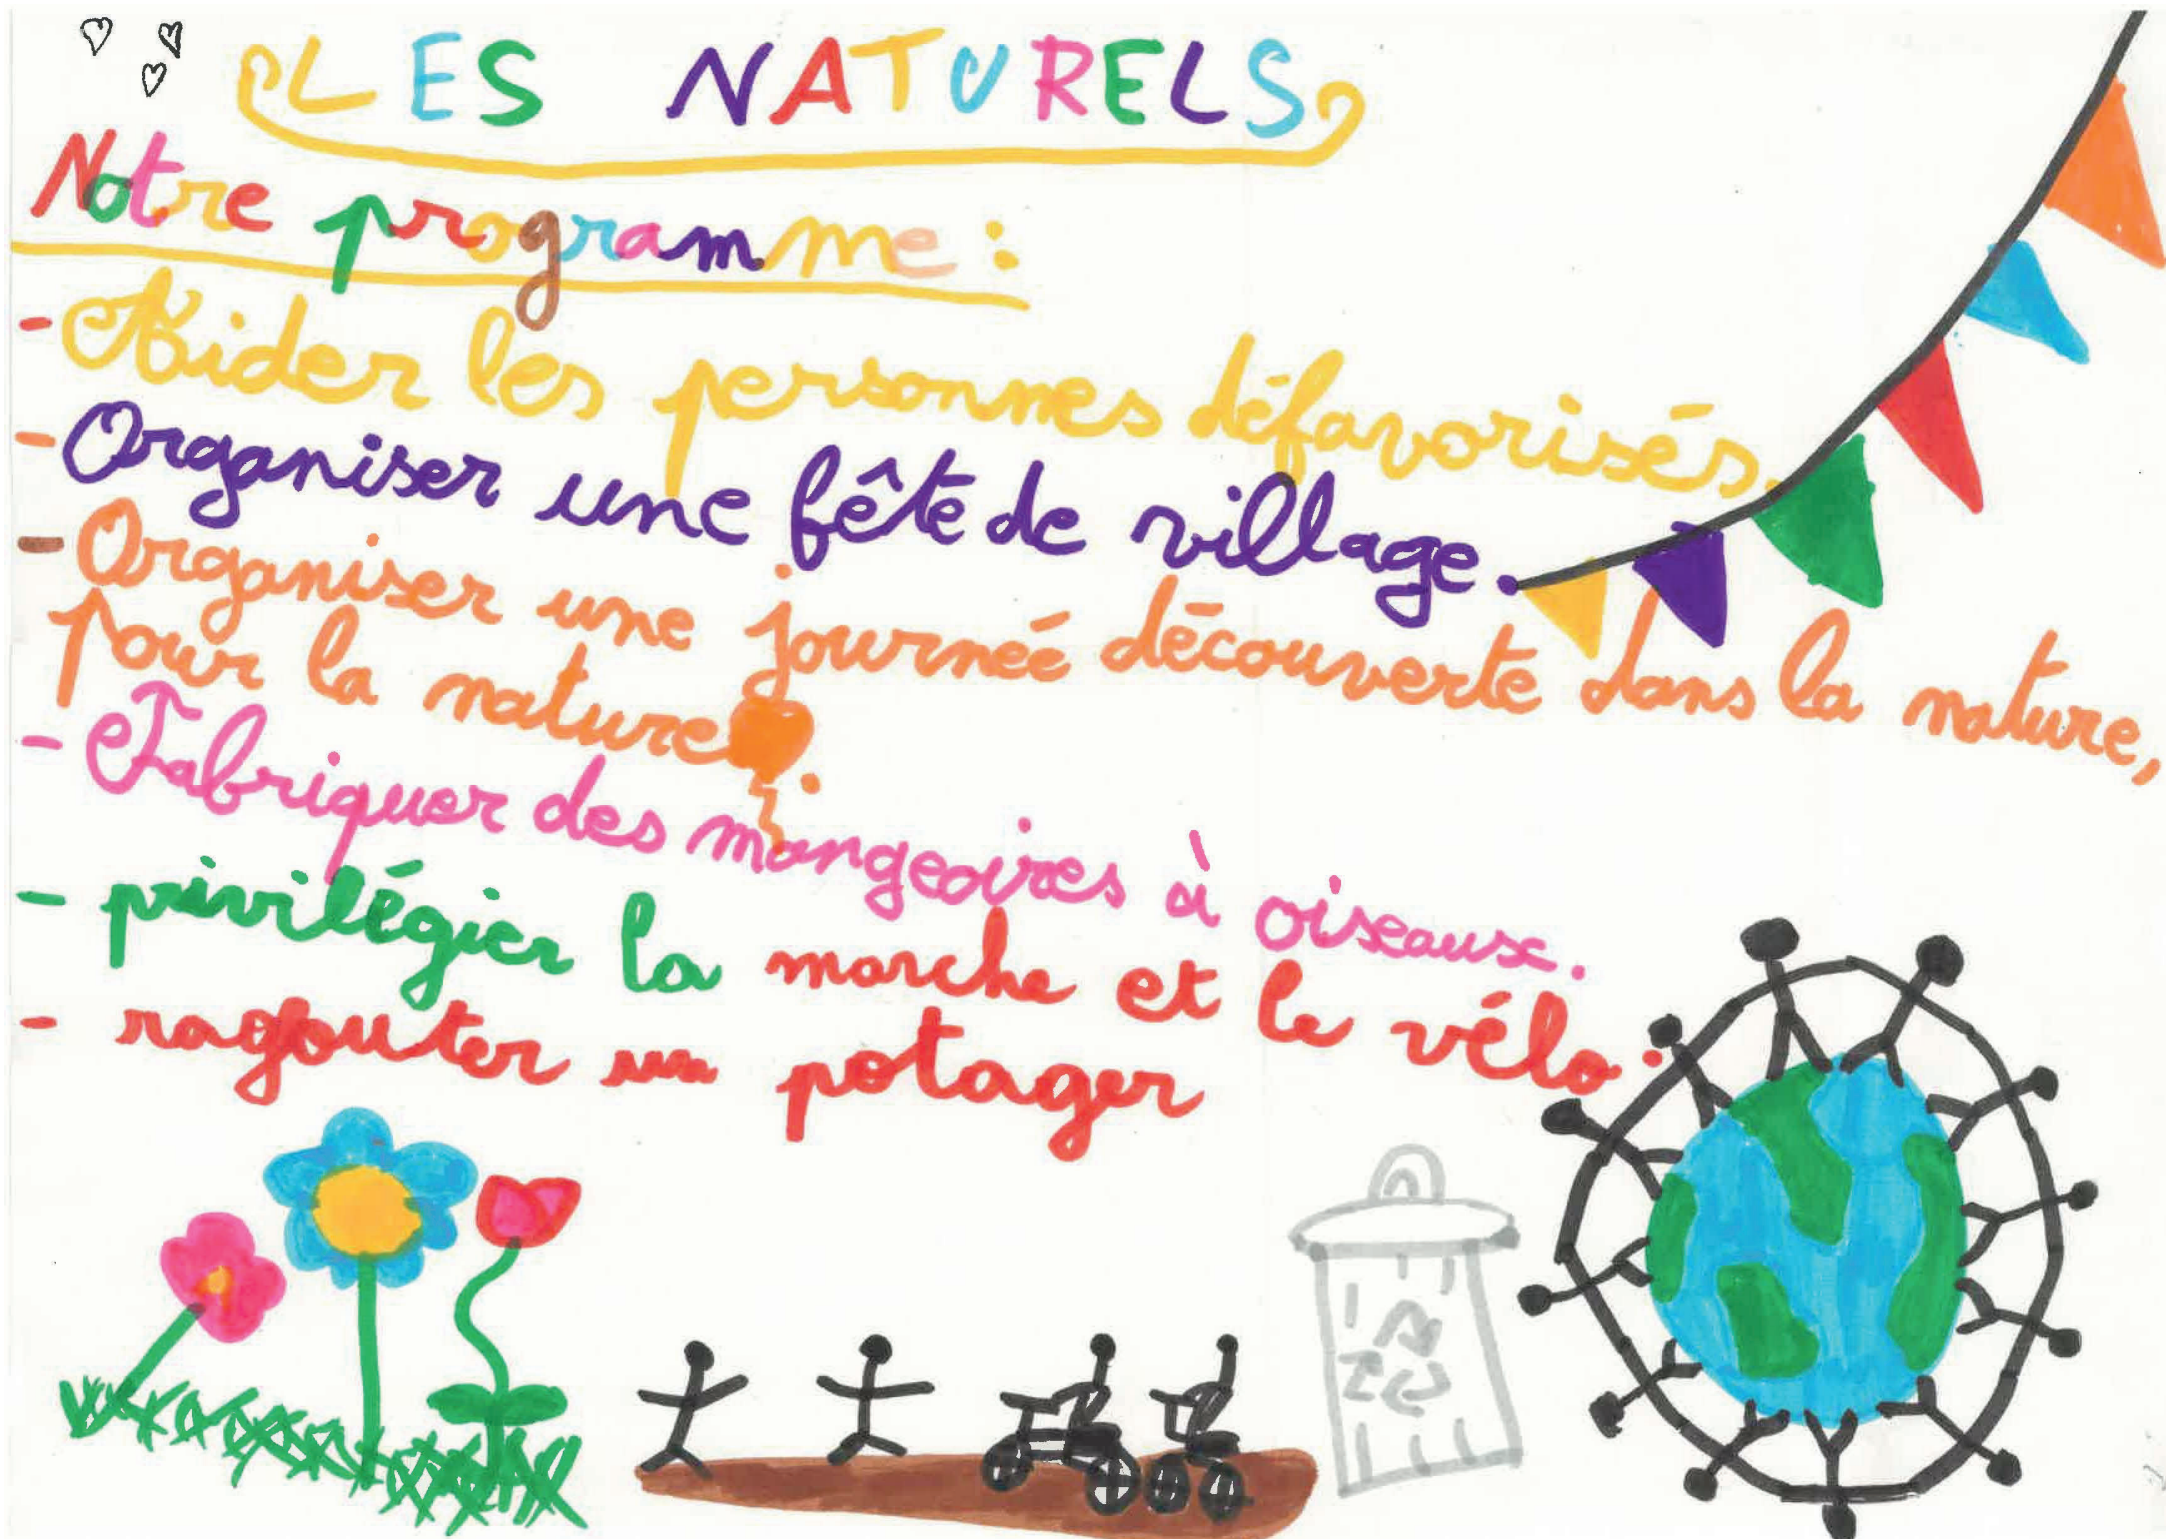 LES NATURELS
Notre programme :
- Aider les personnes défavorisés.
- Organiser une fête de village.
- Organiser une journée découverte dans la nature,
pour la nature.
- Fabriquer des mangeoires à oiseaux.
- privilégier la marche et le vélo.
- ragouter un potager